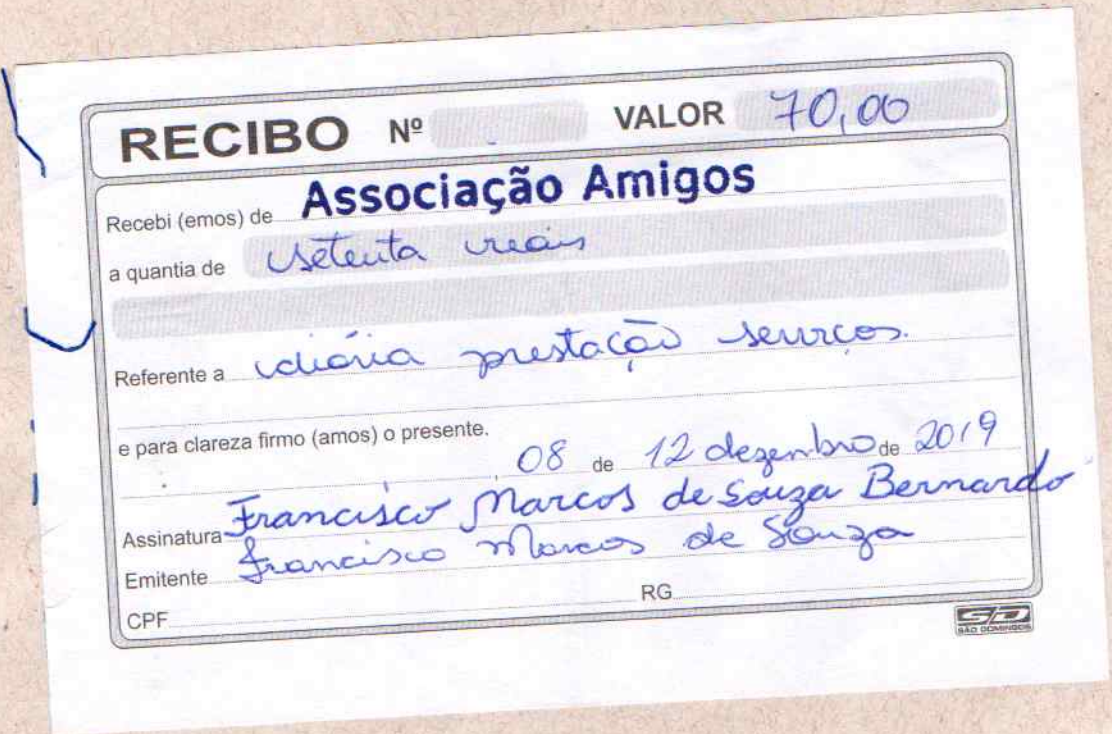 RECIBO Nº VALOR 70,00
Recebi (emos) de Associação Amigos
a quantia de setenta reais
Referente a diária prestação serviços.
e para clareza firmo (amos) o presente.
08 de 12 dezembro de 2019
Assinatura Francisco Marcos de Souza Bernardo
Emitente Francisco Marcos de Souza
CPF RG
SD
SÃO DOMINGOS